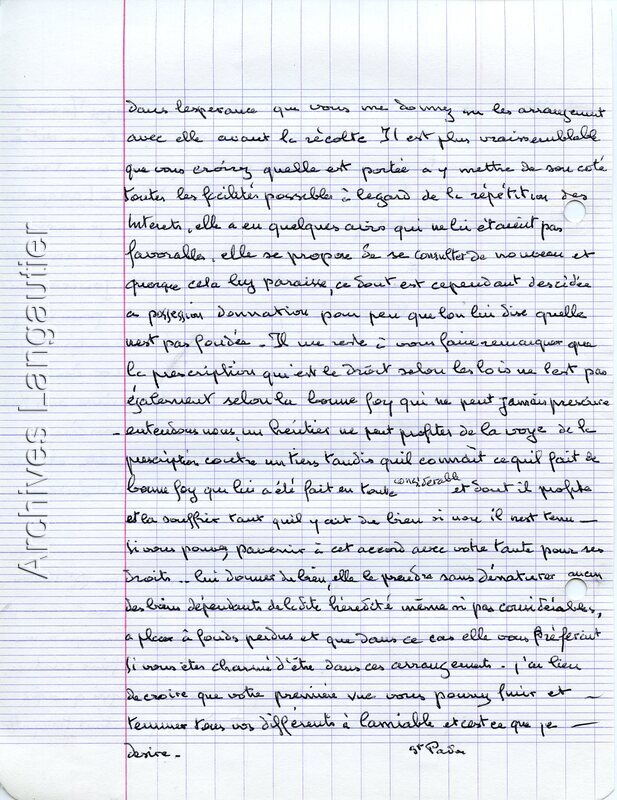 Dans lesperance que vous me donnez sur les arrangement
avec elle avant la récolte Il est plus vraissemblable
que vous croirez quelle est portée a y mettre de son coté
toutes les facilités possibles à legard de la répétition des
Interets, elle a eu quelques avis qui ne lui étaient pas
favorables. elle se propose de se consulter de nouveau et
quoique cela luy paraisse, ce dont est cependant descidée
a possession donnation pour peu que lon lui dise quelle
nest pas fondée. Il me reste à vous faire remarquer que
la prescription qui est le droit selon les lois ne lest pas
également selon la bonne foy qui ne peut jamais prescrire
- entendons nous, un héritier ne peut profiter de la voye de la
prescription contre un tiers tandis quil connait ce quil fait de
bonne foy que lui a été fait en toute considérable et dont il profite
et la souffrir tant quil y ait du bien si non il nest tenu -
Si vous pouvez pavenir à cet accord avec votre tante pour ses
droits .. lui donner du bien, elle le prendre sans dénaturer aucun
des biens dépendants de ladite hérédité même si pas considérables,
a placer à fonds perdus et que dans ce cas elle vous préférant
Si vous etes charmé d'être dans ces arrangements. j'ai lieu
de croire que votre première vue vous pourrez finir et -
terminer tous vos différents à lamiable et cest ce que je -
desire.
Archives Langautier